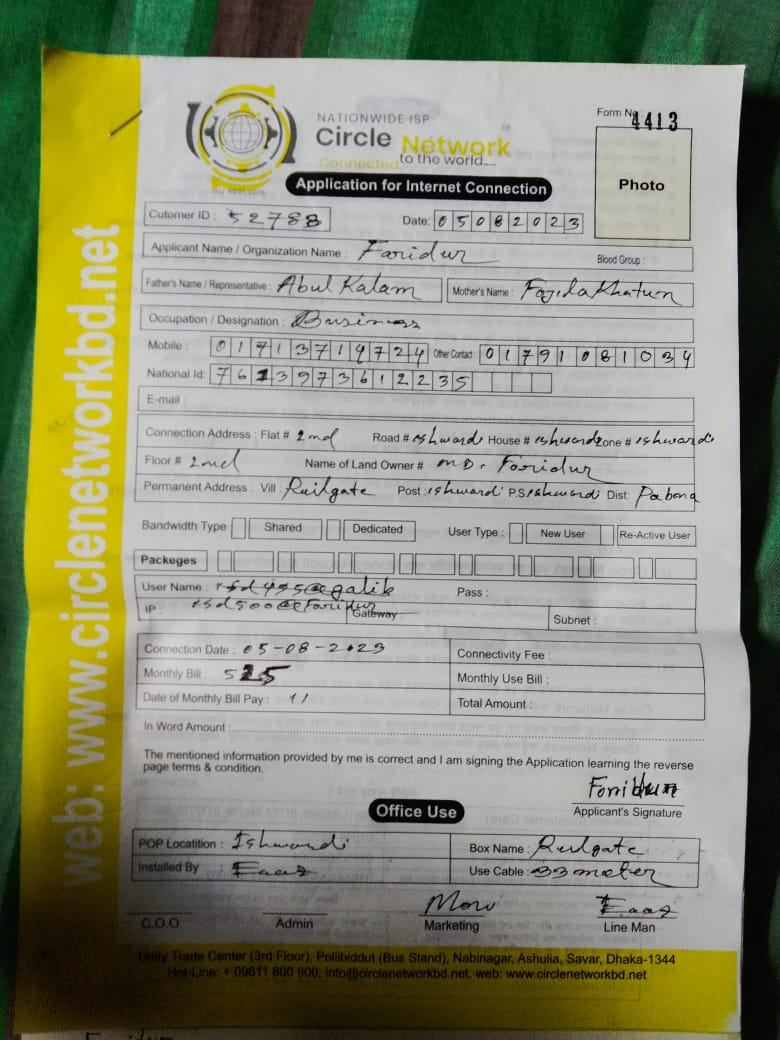 NATIONWIDE ISP
Circle Network
Connected to the world.....
ISO 9001:2015
Form No: 4413
Photo
Application for Internet Connection
Cutomer ID : 52788 Date: 05082023
Applicant Name / Organization Name : Faridur Blood Group :
Father's Name / Representative : Abul Kalam Mother's Name : Fojida Khatun
Occupation / Designation : Business
Mobile : 01713719724 Other Contact : 01791081034
National Id: 7613973612235
E-mail :
Connection Address : Flat # 2nd Road # ishwardi House # ishwardi Zone # ishwardi
Floor # 2nd Name of Land Owner # MD. Faridur
Permanent Address : Vill : Railgate Post : ishwardi P.S ishwardi Dist: Pabna
Bandwidth Type Shared Dedicated User Type : New User Re-Active User
Packeges
User Name : Pass :
IP : Gateway : Subnet :
Connection Date : 05-08-2023 Connectivity Fee :
Monthly Bill : 525 Monthly Use Bill :
Date of Monthly Bill Pay : 11 Total Amount :
In Word Amount :
The mentioned information provided by me is correct and I am signing the Application learning the reverse
page terms & condition.
Faridur
Applicant's Signature
Office Use
POP Locatition : Ishwardi Box Name : Railgate
Installed By : Use Cable : 33 meter
C.O.O Admin Marketing Line Man
Unity Trade Center (3rd Floor), Pollibiddut (Bus Stand), Nabinagar, Ashulia, Savar, Dhaka-1344
Hot-Line: + 09611 800 900, info@circlenetworkbd.net, web: www.circlenetworkbd.net
web: www.circlenetworkbd.net